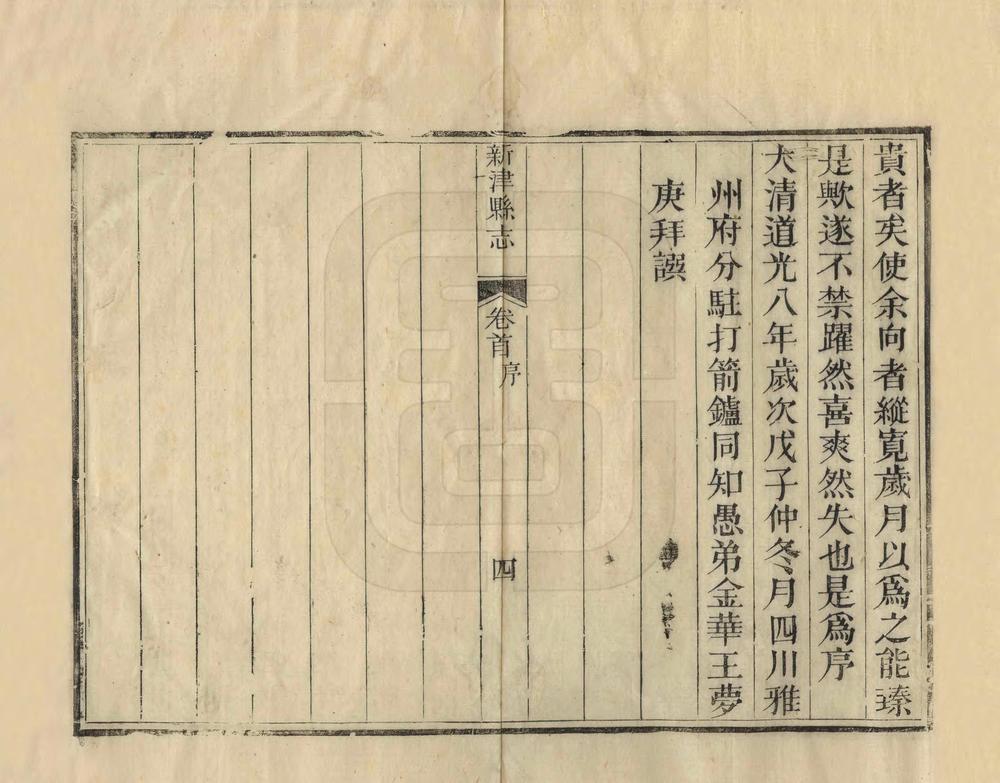 貴者矣使余向者縱寬歲月以爲之能臻
是歟遂不禁躍然喜爽然失也是爲序
大清道光八年歲次戊子仲冬月四川雅
州府分駐打箭鑪同知愚弟金華王夢
庚拜譔
新津縣志
卷首
序
四